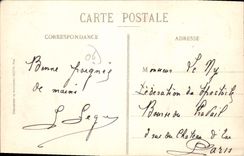 CARTE POSTALE
CORRESPONDANCE
ADRESSE
Bonne poignée
de mains
Monsieur Le Ny
Fédération du Spectacle
Bourse du Travail
3 rue du Château d'Eau
Paris